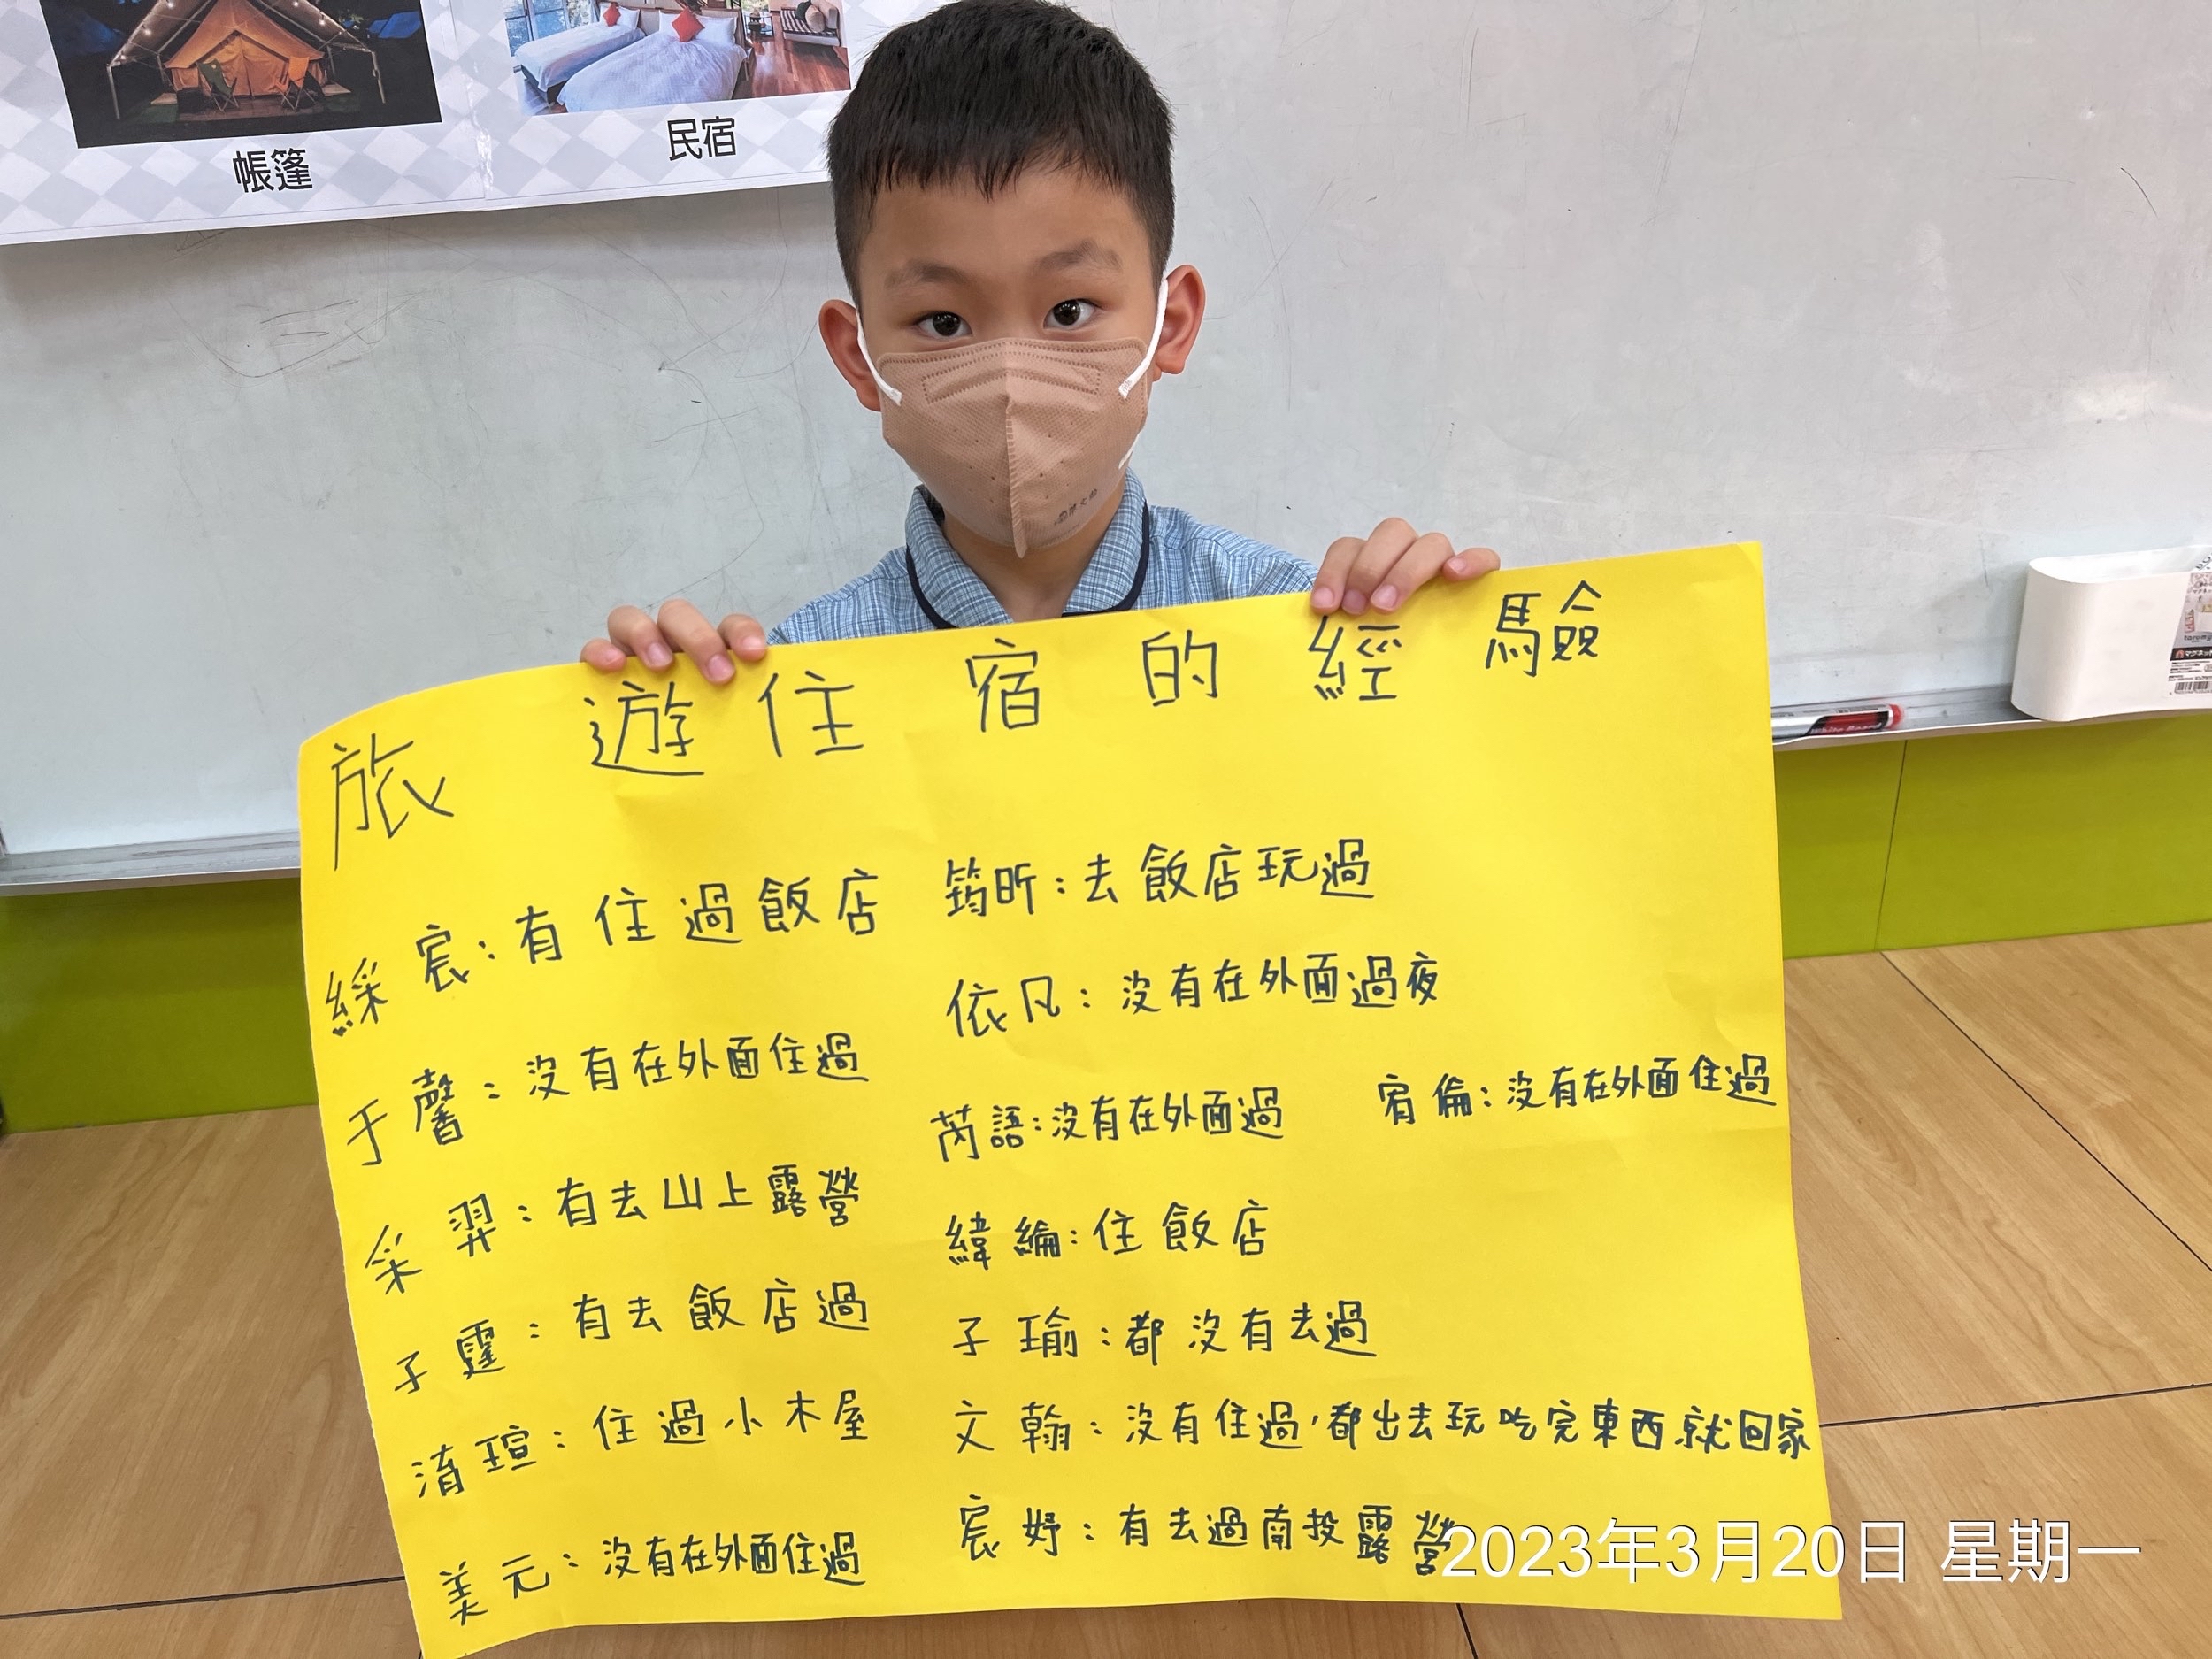 帳篷
民宿
旅遊住宿的經驗
綵宸:有住過飯店
于馨:沒有在外面住過
采羿:有去山上露營
子霆:有去飯店過
淯瑄:住過小木屋
美元:沒有在外面住過
筠昕:去飯店玩過
依凡:沒有在外面過夜
芮語:沒有在外面過
宥倫:沒有在外面住過
緯綸:住飯店
子瑜:都沒有去過
文翰:沒有住過,都出去玩吃完東西就回家
宸妤:有去過南投露營
2023年3月20日 星期一